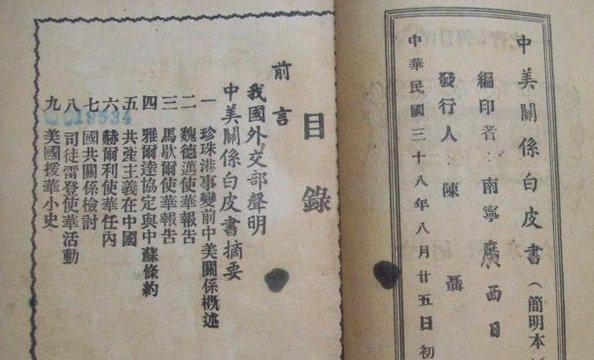 中美關係白皮書（簡明本
編印者：南寧廣西日
發行人：陳聶
中華民國三十八年八月廿五日初
目錄
前言
我國外交部聲明
中美關係白皮書摘要
一 珍珠港事變前中美關係概述
二 魏德邁使華報告
三 馬歇爾使華報告
四 雅爾達協定與中蘇條約
五 共產主義在中國
六 赫爾利使華任內
七 國共關係檢討
八 司徒雷登使華活動
九 美國援華小史
19534